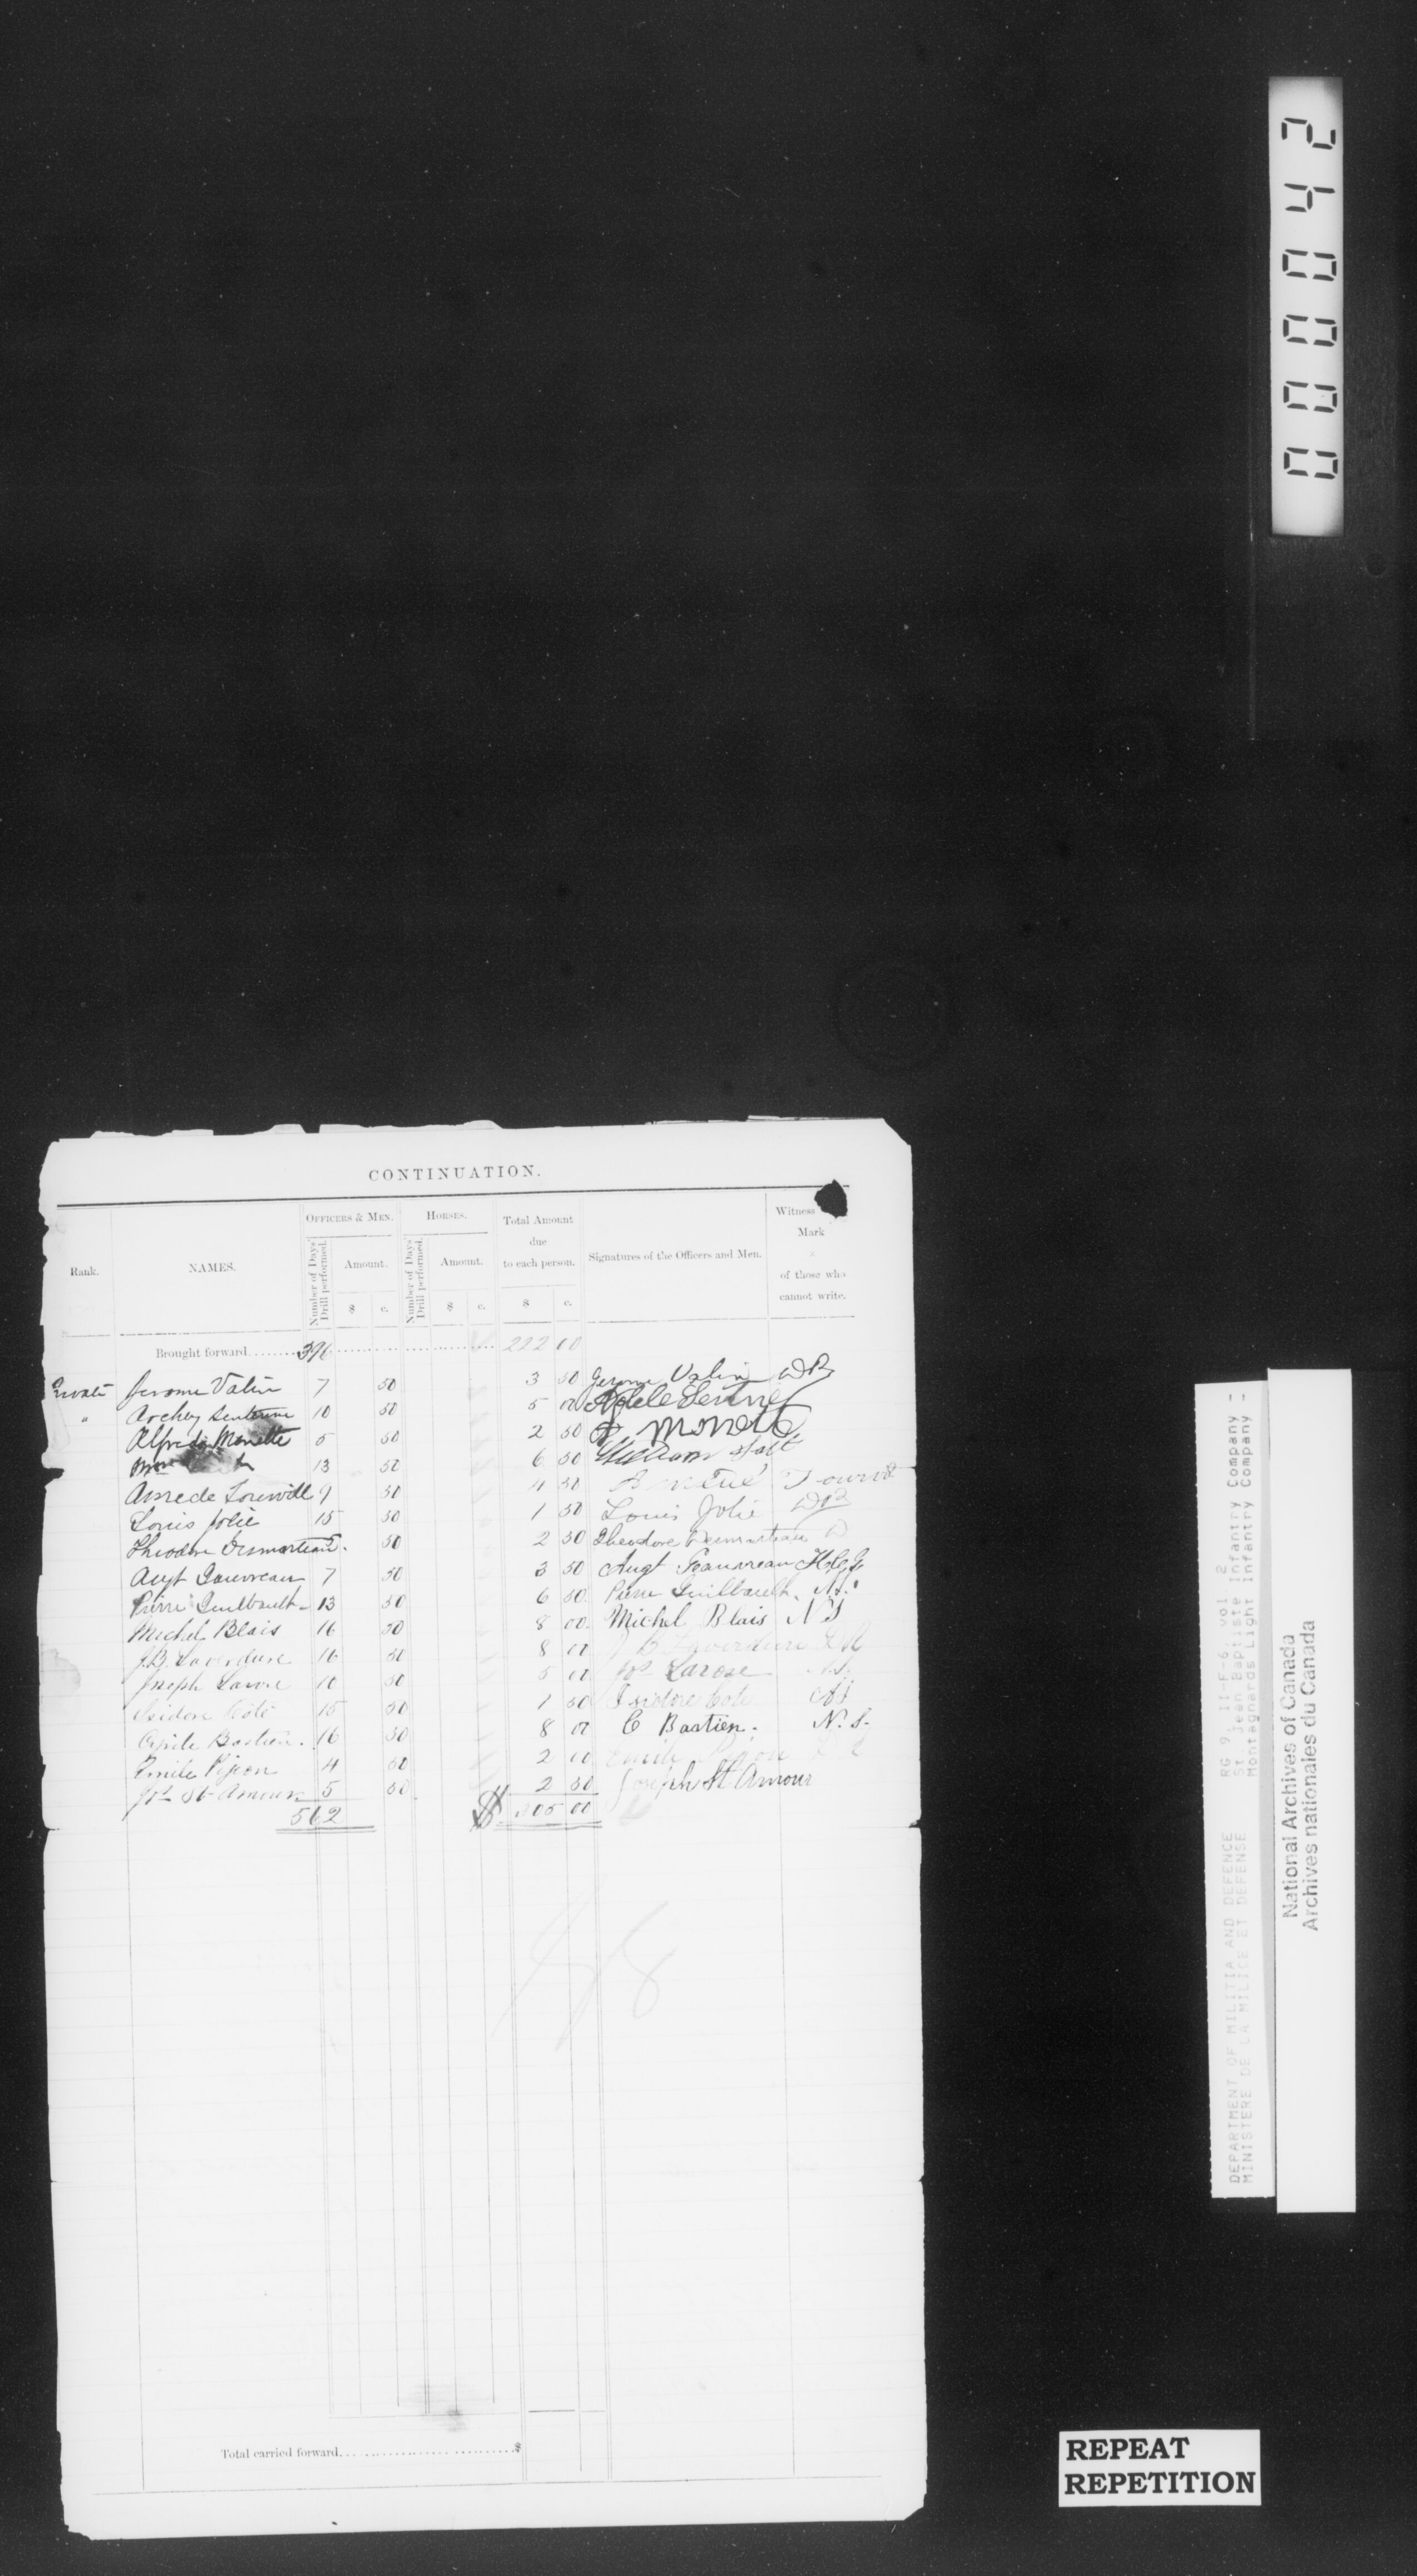 CONTINUATION.
Rank.
NAMES.
OFFICERS & MEN.
Number of Days' Drill performed.
Amount.
$ c.
HORSES.
Number of Days' Drill performed.
Amount.
$ c.
Total Amount
due
to each person.
$ c.
Signatures of the Officers and Men.
Witness
Mark
×
of those who
cannot write.
Brought forward 396 222 00
Private Jerome Valin 7 50 3 50 Jerome Valin
" Archey 10 50 5 00
Alfred Monette 5 50 2 50 Monette
13 50 6 50 William
9 50 4 50
Louis Jolie 15 50 1 50 Louis Jolie
Theodore Desmarteau 5 50 2 50 Theodore Desmarteau
Augt Gauvreau 7 50 3 50 Augt Gauvreau
Pierre Guilbault 13 50 6 50 Pierre Guilbault N.S.
Michel Blais 16 50 8 00 Michel Blais N S
J.B. Laverdure 16 50 8 00 Laverdure
Joseph Larose 10 50 5 00 Jos Larose N.S.
Isidore Coté 15 50 1 50 Isidore Cote
Bastien 16 50 8 00 C Bastien. N. S.
Emile Pijeon 4 50 2 00 Emile
Jos St Amour 5 50 2 50 Joseph St Amour
562 $ 305 00
Total carried forward $
240000
DEPARTMENT OF MILITIA AND DEFENCE RG 9, II-F-6, vol 2
MINISTERE DE LA MILICE ET DEFENSE St. Jean Baptiste Infantry Company -
Montagnards Light Infantry Company -
National Archives of Canada
Archives nationales du Canada
REPEAT
REPETITION